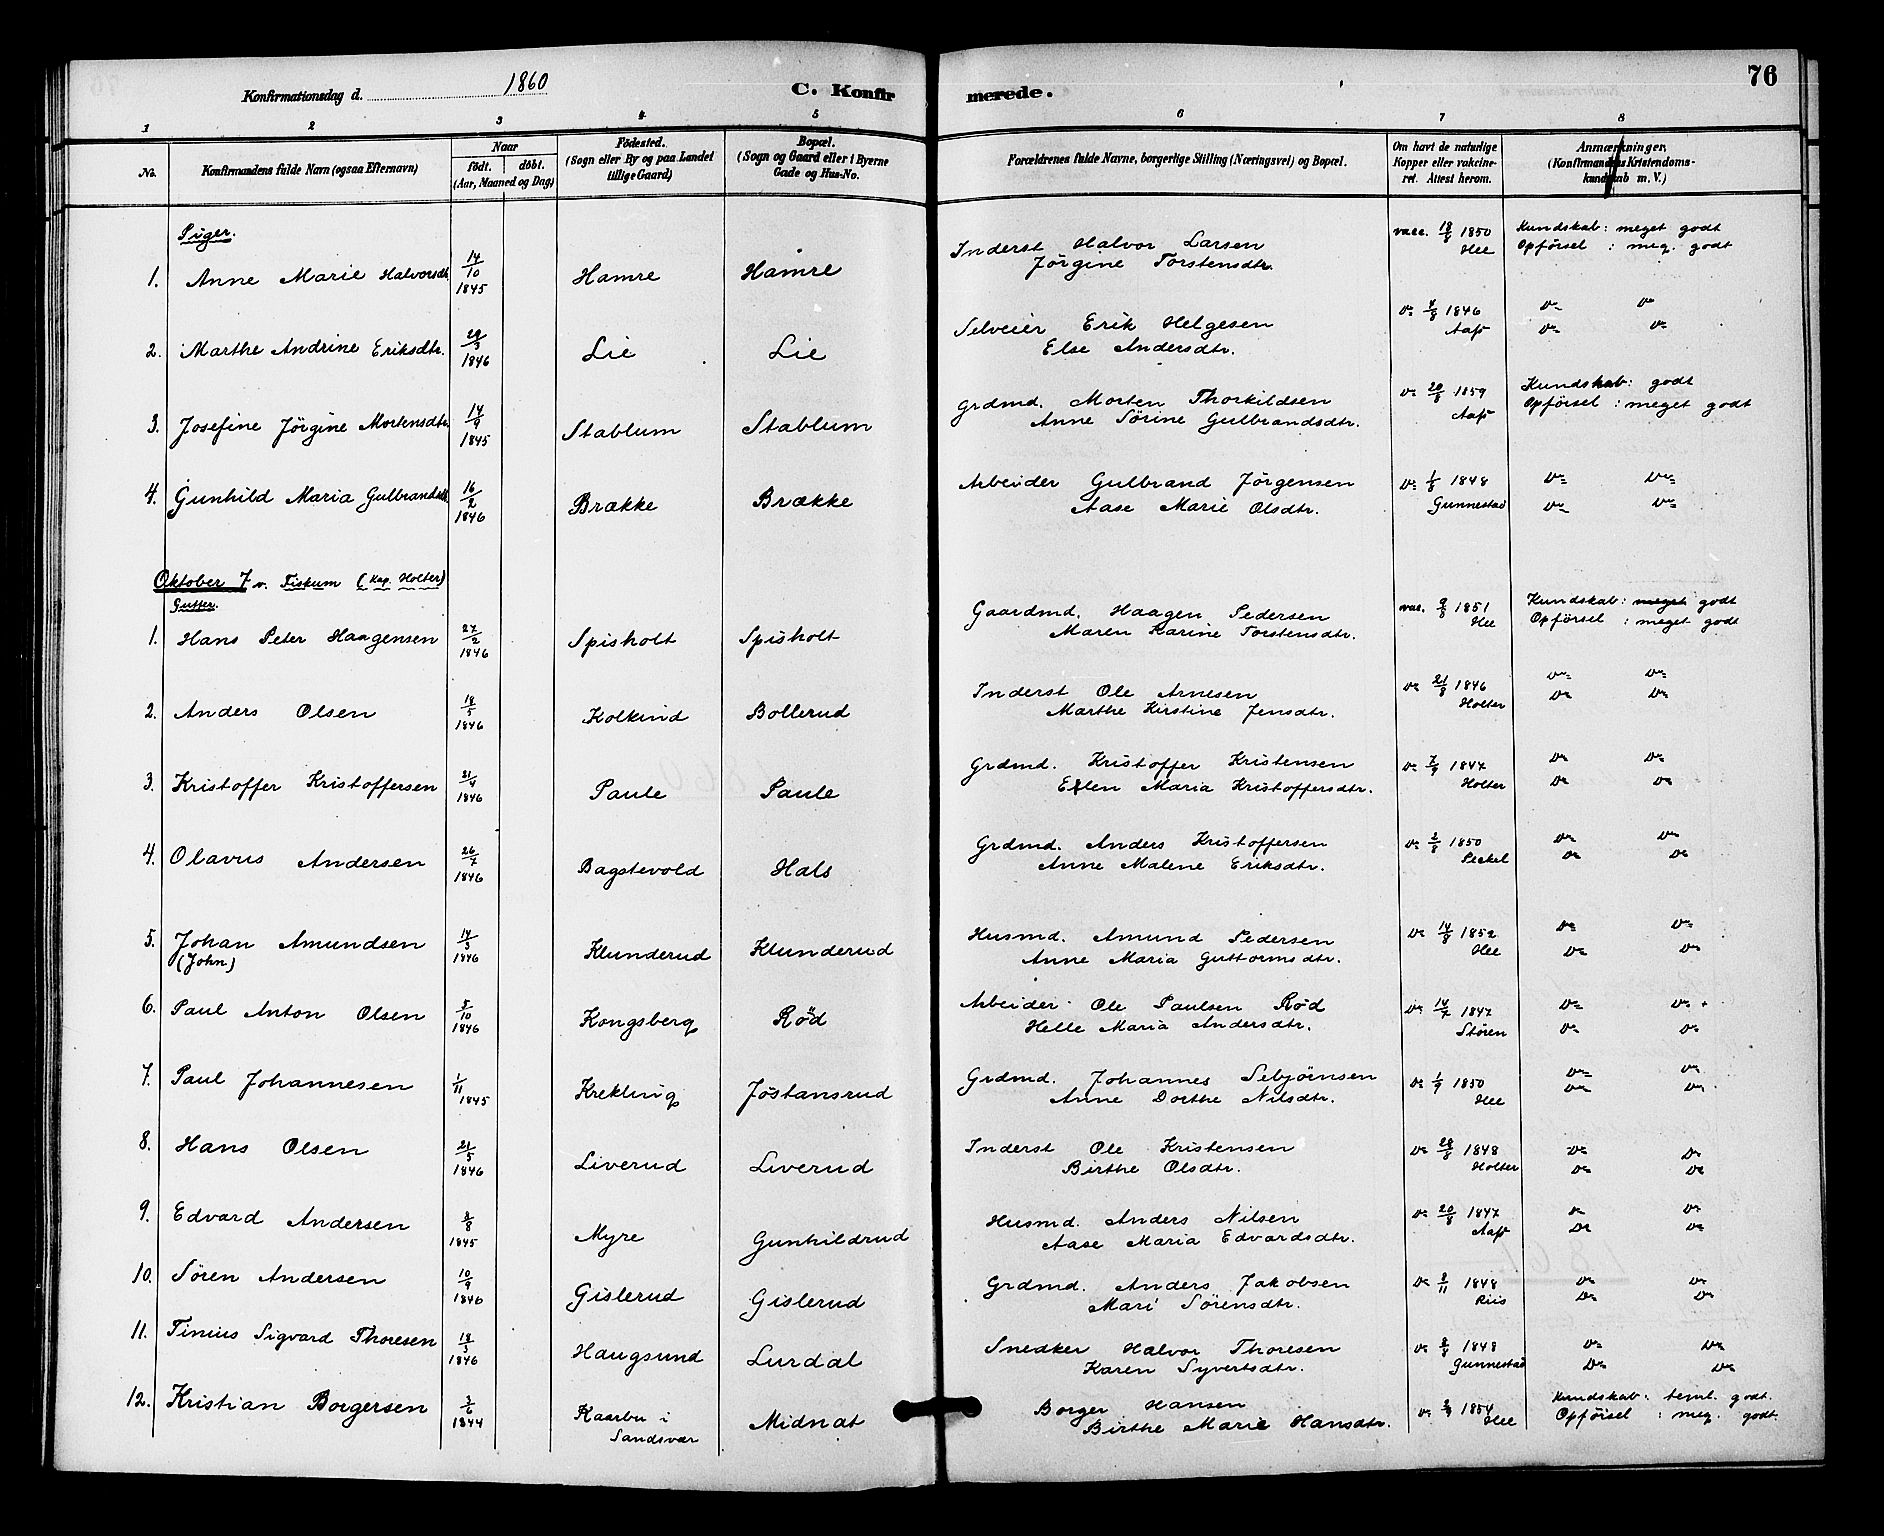 76
Konfirmationsdag d. 1860
C. Konfirmerede.
1 2 3 4 5 6 7 8
No.
Konfirmandens fulde Navn (ogsaa Efternavn)
Naar
født. døbt.
(Aar, Maaned og Dag)
Fødested.
(Sogn eller By og paa Landet
tillige Gaard)
Bopæl.
(Sogn og Gaard eller i Byerne
Gade og Hus-No.
Forældrenes fulde Navne, borgerlige Stilling (Næringsvei) og Bopæl.
Om havt de naturlige
Kopper eller vakcine-
ret. Attest herom.
Anmærkninger.
(Konfirmandens Kristendoms-
kundskab m. V.)
Piger.
1. Anne Marie Halvorsdtr. 14/10 1845 Hamre Hamre Inderst Halvor Larsen
Jörgine Torstensdtr. vacc. 18/8 1850 Hee Kundskab: meget godt
Opförsel : meg. godt
2. Marthe Andrine Eriksdtr. 29/3 1846 Lie Lie Selveier Erik Helgesen
Else Andersdtr. 1846 Aas
3. Josefine Jörgine Mortensdtr. 14/9 1845 Stablum Stablum Grdmd. Morten Thorkildsen
Anne Sörine Gulbrandsdtr. 20/8 1859 Kundskab: godt
Opförsel : meget godt
4. Gunhild Maria Gulbrandsdtr. 16/2 1846 Brække Brække Arbeider Gulbrand Jörgensen
Aase Marie Olsdtr. 1/8 1848 Gunnestad
Oktober 7 v. Fiskum (Kap. Holter)
Gutter.
1. Hans Peter Haagensen 27/2 1846 Spisholt Spisholt Gaardmd. Haagen Pedersen
Maren Karine Torstensdtr. vac. 9/8 1851 Hee Kundskab: meget godt
Opförsel : meget godt
2. Anders Olsen 18/5 1846 Kolkind Bollerud Inderst Ole Arnesen
Marthe Kirstine Jensdtr. 21/8 1846 Holter
3. Kristoffer Kristoffersen 21/4 1846 Paule Paule Grdmd. Kristoffer Kristensen
Ellen Maria Kristoffersdtr. 7/9 1847 Holter
4. Olavus Andersen 26/7 1846 Bagstevold Hals Grdmd. Anders Kristoffersen
Anne Malene Eriksdtr. 2/8 1850
5. Johan Amundsen 14/3 1846 Klunderud Klunderud Husmd. Amund Pedersen
(John) Anne Maria Guttormsdtr. 14/8 1852 Hee
6. Paul Anton Olsen 5/10 1846 Kongsberg Röd Arbeider Ole Paulsen Röd
Helle Maria Andersdtr. 14/7 1847 Stören
7. Paul Johannesen 1/11 1845 Krekling Jöstansrud Grdmd. Johannes Sebjörnsen
Anne Dorthe Nilsdtr. 1/9 1850 Hee
8. Hans Olsen 21/5 1846 Liverud Liverud Inderst Ole Kristensen
Birthe Olsdtr. 28/8 1848 Holter
9. Edvard Andersen 1845 Myre Gunhildrud Husmd. Anders Nilsen
Aase Maria Edvardsdtr. 20/8 1847
10. Sören Andersen 10/9 1846 Gislerud Gislerud Grdmd. Anders Jakobsen
Mari Sörensdtr. 1848 Riis
11. Tinius Sigvard Thoresen 18/3 1846 Haugsund Lurdal Snedker Halvor Thoresen
Karen Syvertsdtr. 1848 Gunnestad
12. Kristian Borgersen 3/6 1844 Kaarbu i
Sandsvær Midnat Borger Hansen
Birthe Marie Hansdtr. 1854 Hee Kundskab: teml. godt.
Opförsel : meg. godt.